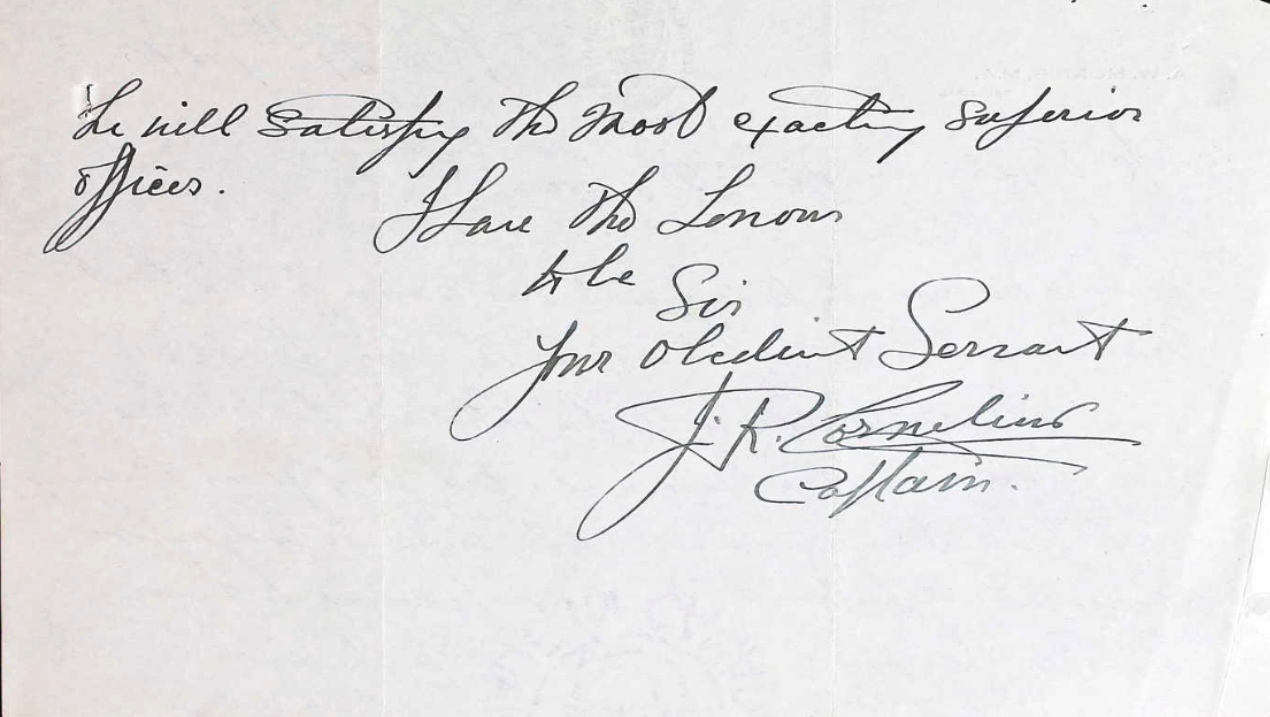 he will satisfy the most exacting superior
officer.
I have the honour
to be
Sir
Your Obedient Servant
J. R. Cornelius
Captain.